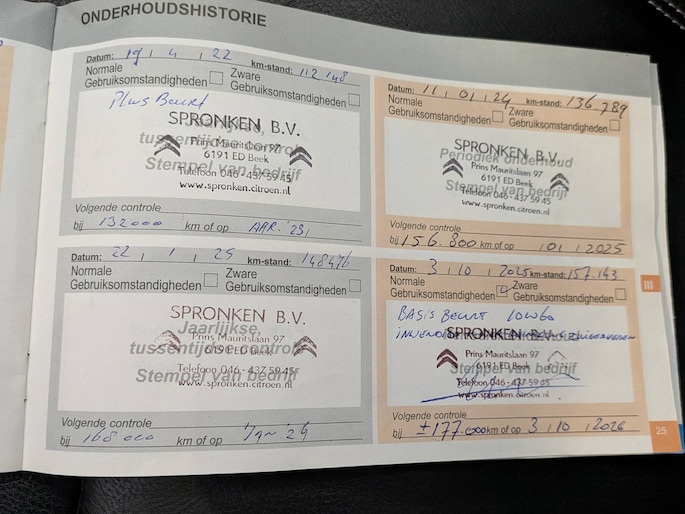 ONDERHOUDSHISTORIE
Datum: 19 / 4 / 22 km-stand: 112 148
Normale Gebruiksomstandigheden
Zware Gebruiksomstandigheden
Plus Beurt
SPRONKEN B.V.
Jaarlijkse,
tussentijdse controle
Prins Mauritslaan 97
6191 ED Beek
Stempel van bedrijf
Telefoon 046 - 437 59 45
www.spronken.citroen.nl
Volgende controle
bij 132000 km of op
Datum: 11 / 01 / 24 km-stand: 136.789
Normale Gebruiksomstandigheden
Zware Gebruiksomstandigheden
SPRONKEN B.V.
Periodiek onderhoud
Prins Mauritslaan 97
6191 ED Beek
Stempel van bedrijf
Telefoon 046 - 437 59 45
www.spronken.citroen.nl
Volgende controle
bij 156.800 km of op / 01 / 2025
Datum: 22 / 1 / 25 km-stand: 148476
Normale Gebruiksomstandigheden
Zware Gebruiksomstandigheden
SPRONKEN B.V.
Jaarlijkse,
tussentijdse controle
Prins Mauritslaan 97
6191 ED Beek
Stempel van bedrijf
Telefoon 046 - 437 59 45
www.spronken.citroen.nl
Volgende controle
bij 168 000 km of op Jan 26
Datum: 3 / 10 / 2025 km-stand: 157.143
Normale Gebruiksomstandigheden
Zware Gebruiksomstandigheden
BASIS BEURT
SPRONKEN B.V.
Prins Mauritslaan 97
6191 ED Beek
Stempel van bedrijf
Telefoon 046 - 437 59 45
www.spronken.citroen.nl
Volgende controle
bij ±177.000 km of op 3 / 10 / 2026
25